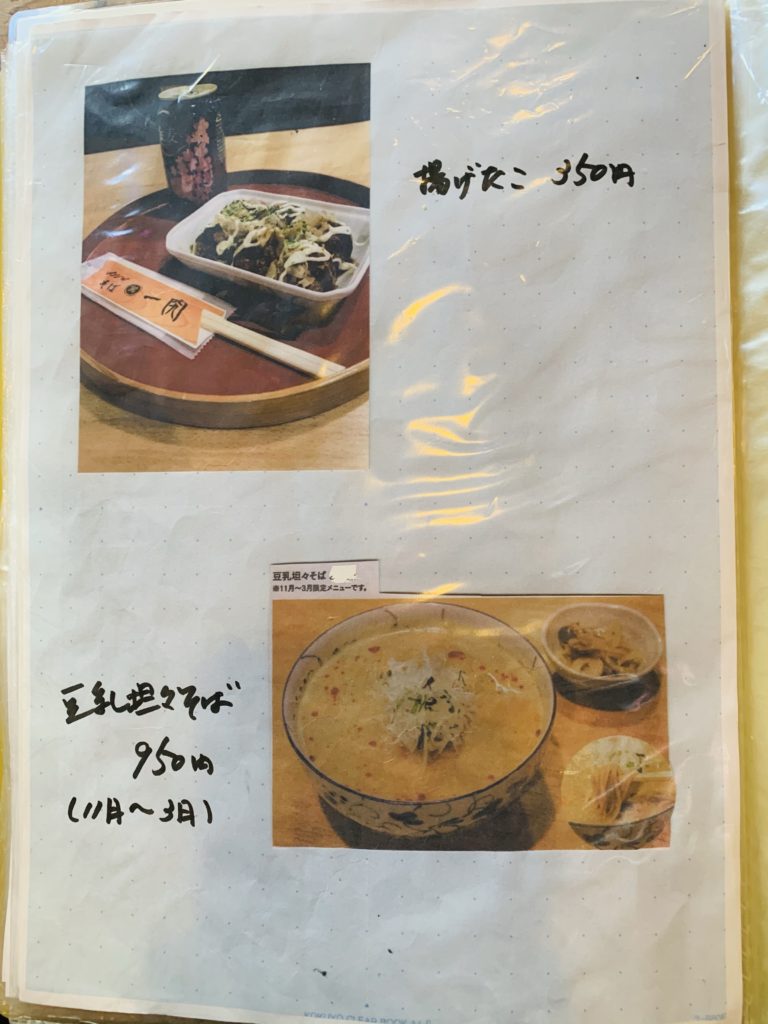 揚げたこ 350円
そば 一関
豆乳坦々そば
※11月〜3月限定メニューです。
豆乳坦々そば
950円
(11月〜3月)
KOKUYO CLEAR BOOK